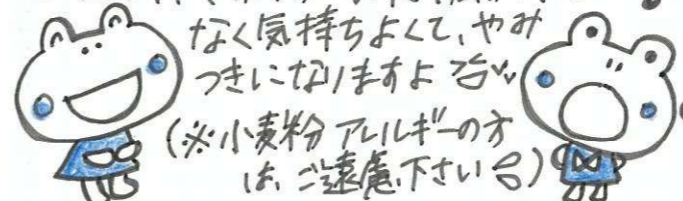 なく気持ちよくて、やみ
つきになりますよ
(※小麦粉アレルギーの方
は、ご遠慮下さい)